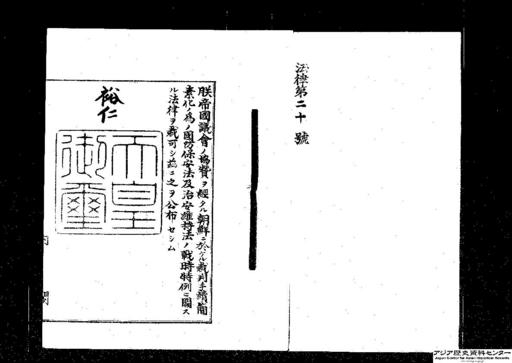 法律第二十號
朕帝國議會ノ協贊ヲ經タル朝鮮ニ於ケル裁判手續簡
素化ノ爲ノ國防保安法及治安維持法ノ戰時特例ニ關ス
ル法律ヲ裁可シ茲ニ之ヲ公布セシム
裕仁
天皇
御璽
内閣
アジア歴史資料センター
Japan Center for Asian Historical Records